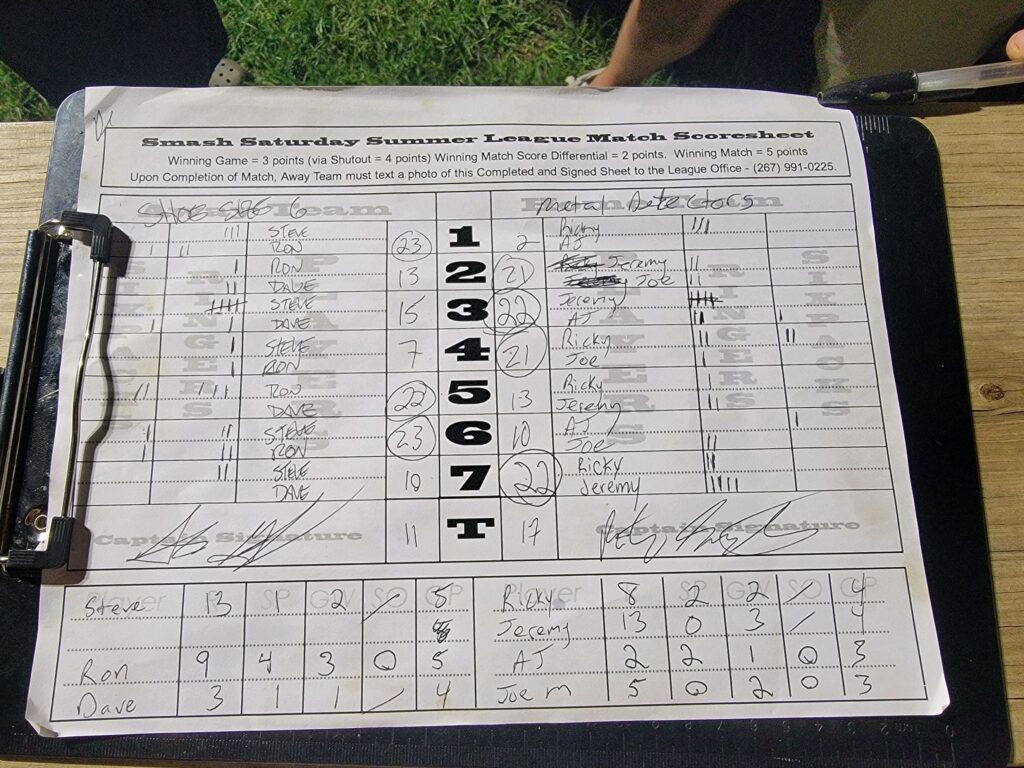 Smash Saturday Summer League Match Scoresheet
Winning Game = 3 points (via Shutout = 4 points) Winning Match Score Differential = 2 points. Winning Match = 5 points
Upon Completion of Match, Away Team must text a photo of this Completed and Signed Sheet to the League Office - (267) 991-0225.
SHOE SIZE 6 Metal Detectors
STEVE Ricky
RON 23 1 2 AJ
RON Jeremy
DAVE 13 2 21 Joe
STEVE Jeremy
DAVE 15 3 22 AJ
STEVE Ricky
RON 7 4 21 Joe
RON Ricky
DAVE 22 5 13 Jeremy
STEVE AJ
RON 23 6 10 Joe
STEVE Ricky
DAVE 10 7 22 Jeremy
Captain Signature 11 T 17 Captain Signature
Player SP GW SO GP Player SP GW SO GP
Steve 13 1 2 / 5 Ricky 8 2 2 / 4
Jeremy 13 0 3 / 4
Ron 9 4 3 0 5 AJ 2 2 1 0 3
Dave 3 1 1 / 4 Joe m 5 0 2 0 3